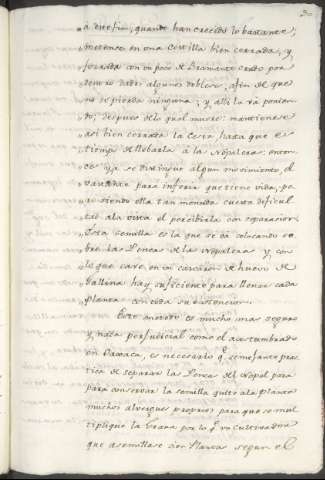 a este fin; quando han crecido lo bastante,
meterse en una Cestilla bien cerrada, y
forrada con un poco de Bramante crudo por
dentro dados algunos dobleces, afin de que
no se pierda ninguna; y alli la va ponien-
do; despues de lo qual muere: mantienese
asi bien cerrada la Cesta hasta que es
tiempo de llebarla à la nopalera: enton-
ces ya se distingue algun movimiento, el
bastante para inferir que tiene vida, pe-
ro siendo ella tan menuda cuesta dificul-
tad ala vista el percibirla con separacion.
Esta semilla es la que se va colocando so-
bre las Pencas de la nopalera y con
lo que cave en un cascaron de huevo de
Gallina hay suficiente para llenar cada
planta con toda su distencion.
Este metodo es mucho mas seguro
y nada perjudicial como el acostumbrado
en Oaxaca, es necesario q. semejante prac-
tica de separar las Pencas de Nopal para
para conservar la semilla quite ala planta
muchos alvergues proprios para que se mul-
tiplique la Grana por lo q. un Cultivador
que asemillase cien Plantas segun el